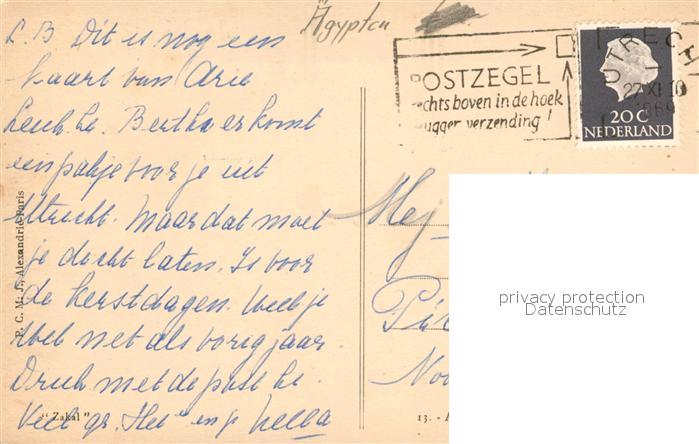 L. B. Dit is nog een
kaart van Arie
Leuk he. Bertha er komt
een pakje voor je uit
Utrecht. Maar dat moet
je dicht laten. Is voor
de kerstdagen. Weet je
wel net als vorig jaar.
Druk met de post he
Veel gr. en Hella
Ägypten
POSTZEGEL
rechts boven in de hoek
vlugger verzending!
UTRECHT
27 XI 10
1969
20 C
NEDERLAND
P. C. M. J., Alexandrie-Paris
"Zakal"
13. - A
Mej
No
privacy protection
Datenschutz